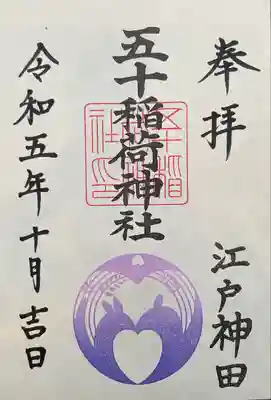 奉拝
江戸神田
五十稲荷神社
令和五年十月吉日